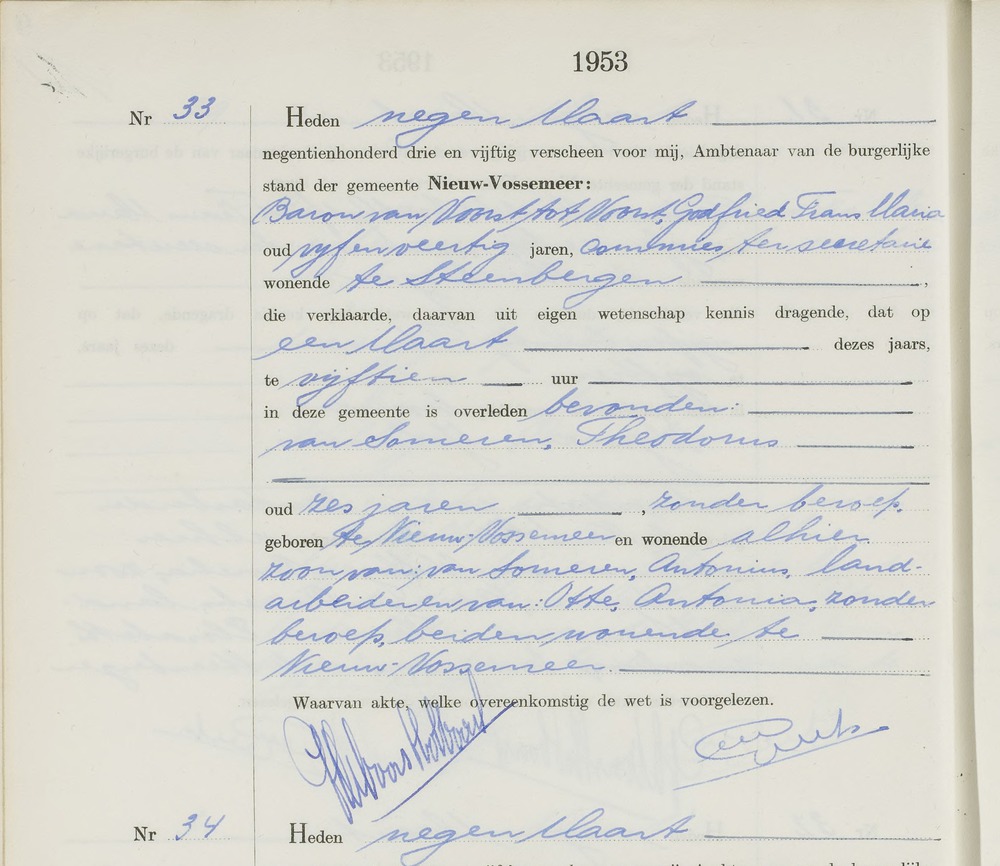 1953
Nr 33 Heden negen Maart
negentienhonderd drie en vijftig verscheen voor mij, Ambtenaar van de burgerlijke
stand der gemeente Nieuw-Vossemeer:
Baron van Voorst tot Voorst, Godfried Frans Maria
oud vijf en veertig jaren, commies ter secretarie
wonende te Steenbergen,
die verklaarde, daarvan uit eigen wetenschap kennis dragende, dat op
een Maart dezes jaars,
te vijftien uur
in deze gemeente is overleden bevonden:
van Someren, Theodorus
oud zes jaren, zonder beroep,
geboren te Nieuw-Vossemeer en wonende alhier
zoon van: van Someren, Antonius, land-
arbeider en van: Otte, Antonia, zonder
beroep, beiden wonende te
Nieuw-Vossemeer.
Waarvan akte, welke overeenkomstig de wet is voorgelezen.
Nr 34 Heden negen Maart